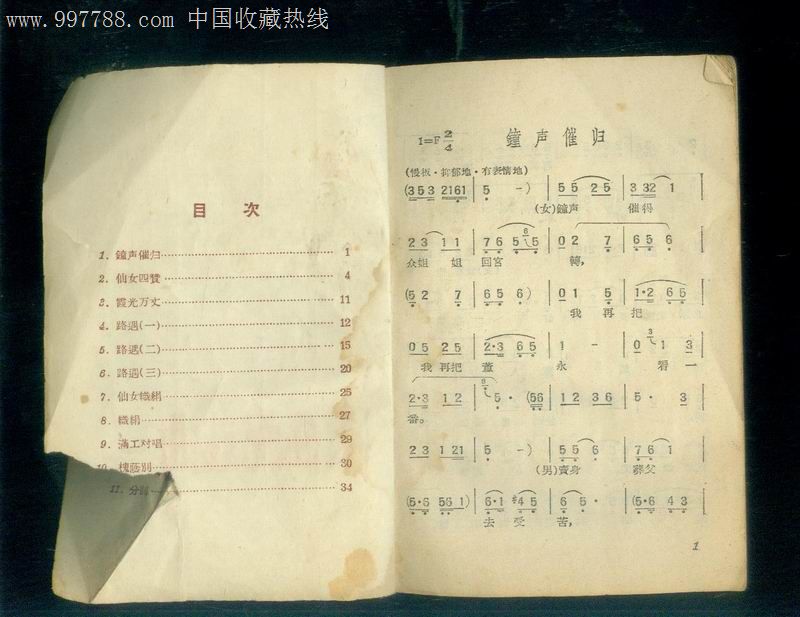 www.997788.com 中国收藏热线
目 次
1. 鐘声催归 1
2. 仙女四贊 4
3. 霞光万丈 11
4. 路遇(一) 12
5. 路遇(二) 15
6. 路遇(三) 20
7. 仙女織絹 25
8. 織絹 27
9. 满工对唱 29
10. 槐蔭別 30
11. 分 34
鐘声催归
1=F 2/4
(慢板·抑郁地·有表情地)
(3 5 3 2161 | 5 -) | 5 5 2 5 | 3 32 1 |
(女)鐘声 催得
2 3 1 1 | 7 6 5 5 | 0 2 7 | 6 5 6 |
众姐 姐 回宮 轉,
(5 2 7 | 6 5 6) | 0 1 5 | 1·2 6 5 |
我 再 把
0 5 2 5 | 2·3 6 5 | 1 - | 0 1 3 |
我 再把 董 永 看 一
2·3 1 2 | 5 · (56 | 1 2 3 6 | 5 · 3 |
番。
2 3 1 21 | 5 -) | 5 5 6 | 7 6 1 |
(男)賣身 葬父
(5·6 56 1) | 6·1 #4 5 | 6 5 · | (5·6 4 3 |
去 受 苦,
1